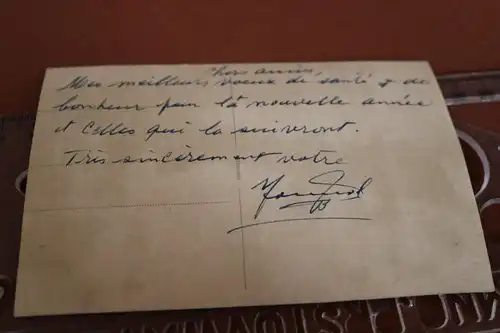 Chers amis,
Mes meilleurs voeux de santé & de
bonheur pour la nouvelle année
et celles qui la suivront.
Très sincèrement votre